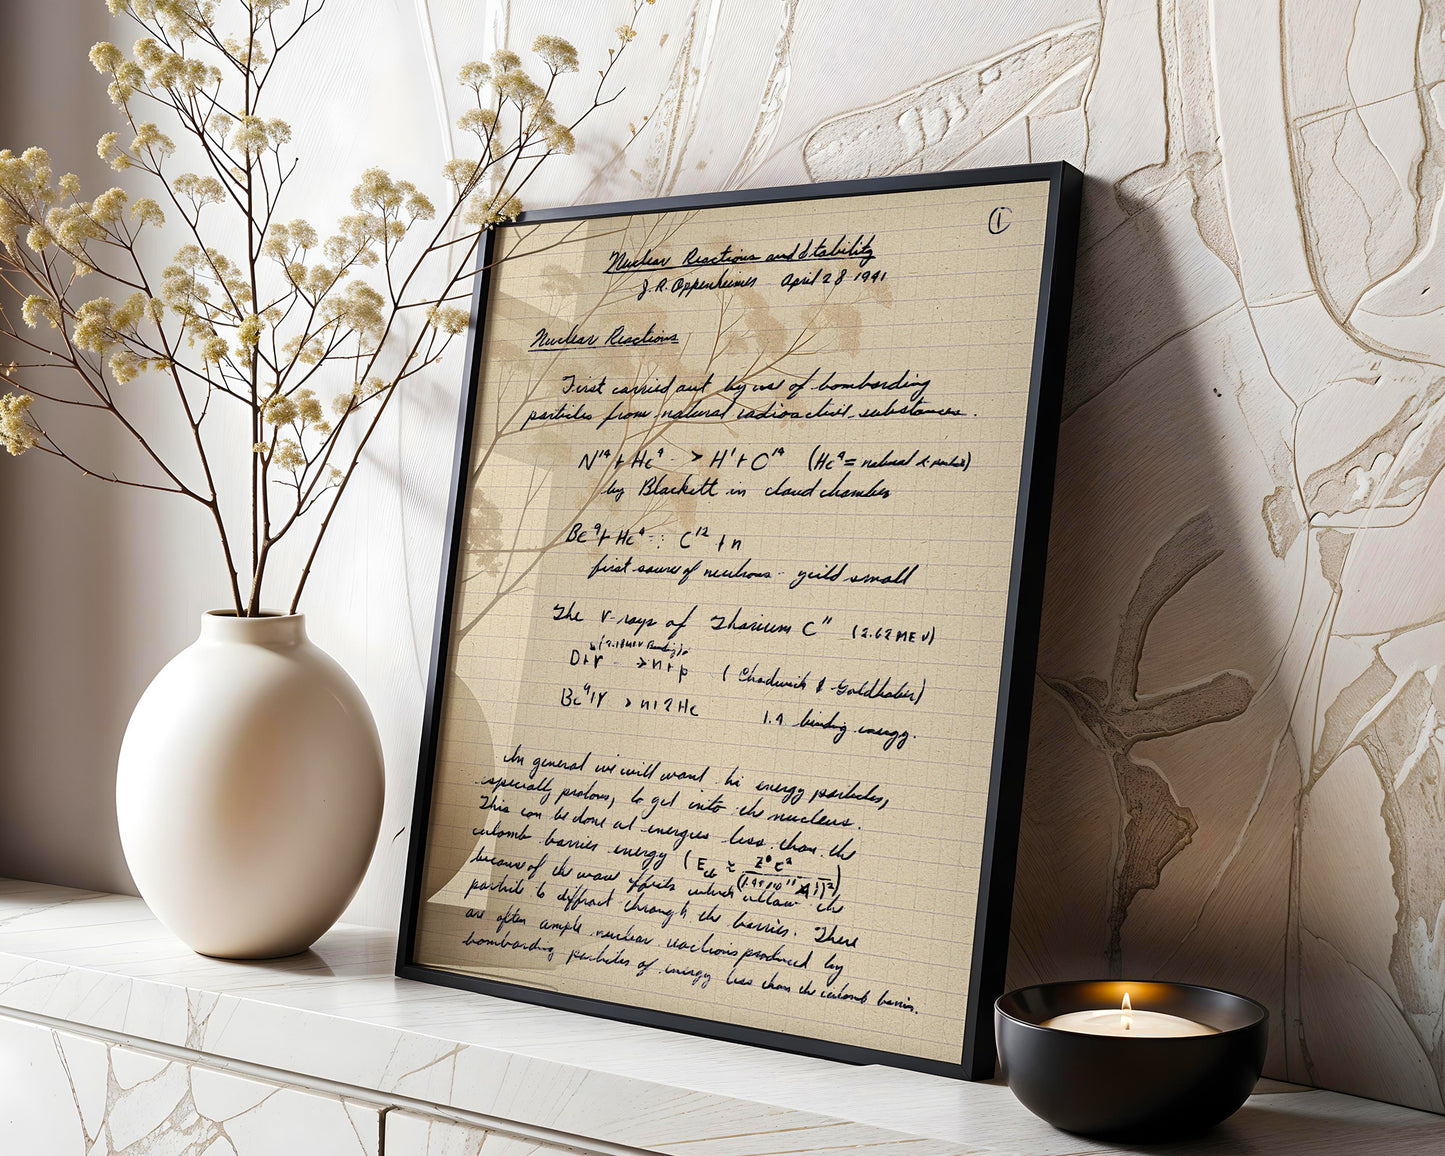 ①
Nuclear Reactions and Stability
J. R. Oppenheimer April 28 1941
Nuclear Reactions
First carried out by use of bombarding
particles from natural radioactive substances.
N¹⁴ + He⁴ -> H¹ + O¹⁷ (He⁴ = natural α-particle)
by Blackett in cloud chamber
Be⁹ + He⁴ C¹² + n
first source of neutrons - yield small
The γ-rays of Thorium C" (2.62 MEV)
(2.18 MEV Binding)
D + γ -> n + p (Chadwick & Goldhaber)
Be⁹ + γ > n + 2He 1.4 binding energy.
In general we will want hi energy particles,
especially protons, to get into the nucleus.
This can be done at energies less than the
culomb barrier energy (E
because of the wave which allow the
particle to diffract through the barrier. There
are often ample nuclear reactions produced by
bombarding particles of energy less than the culomb barrier.